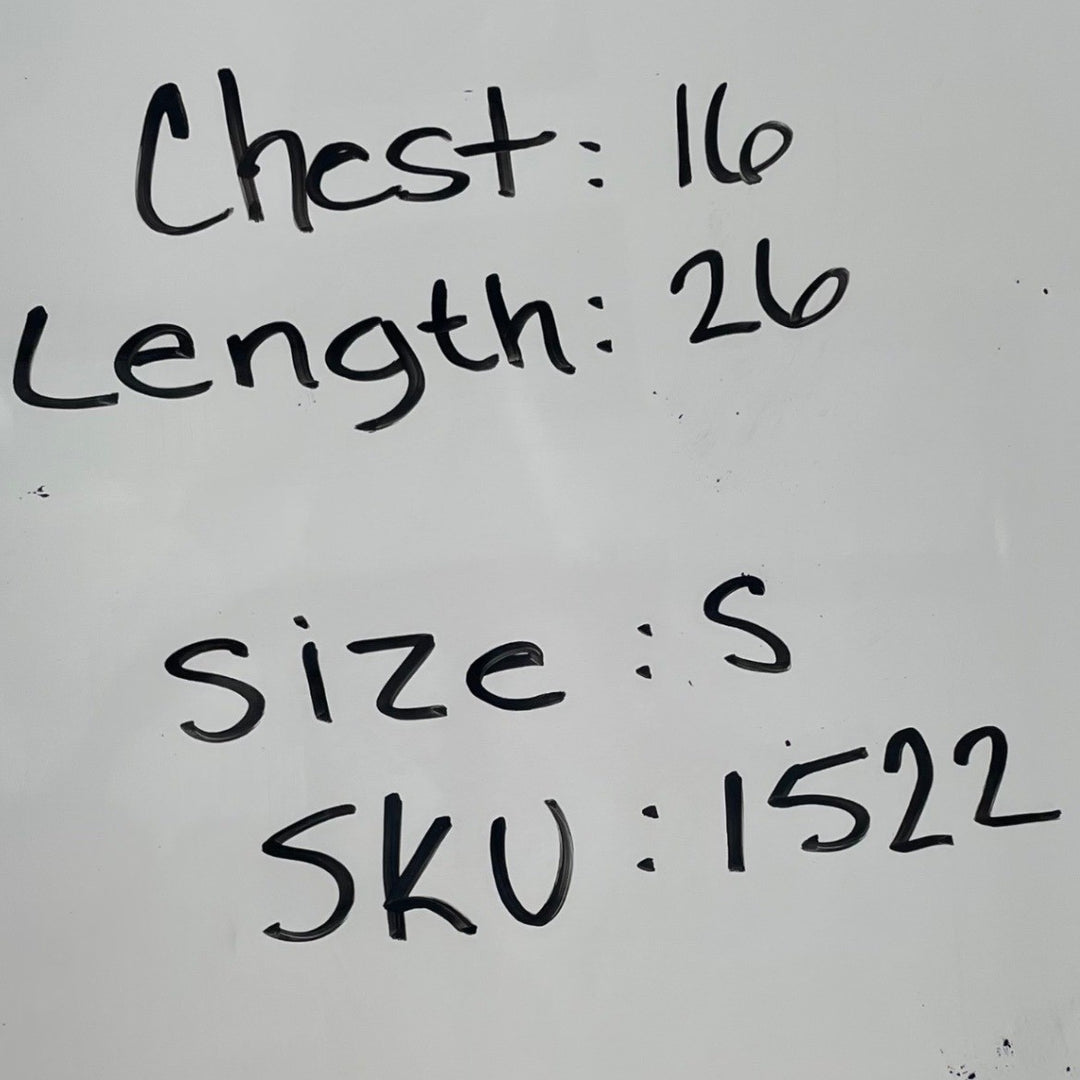 Chest: 16
Length: 26
Size: S
SKU: 1522